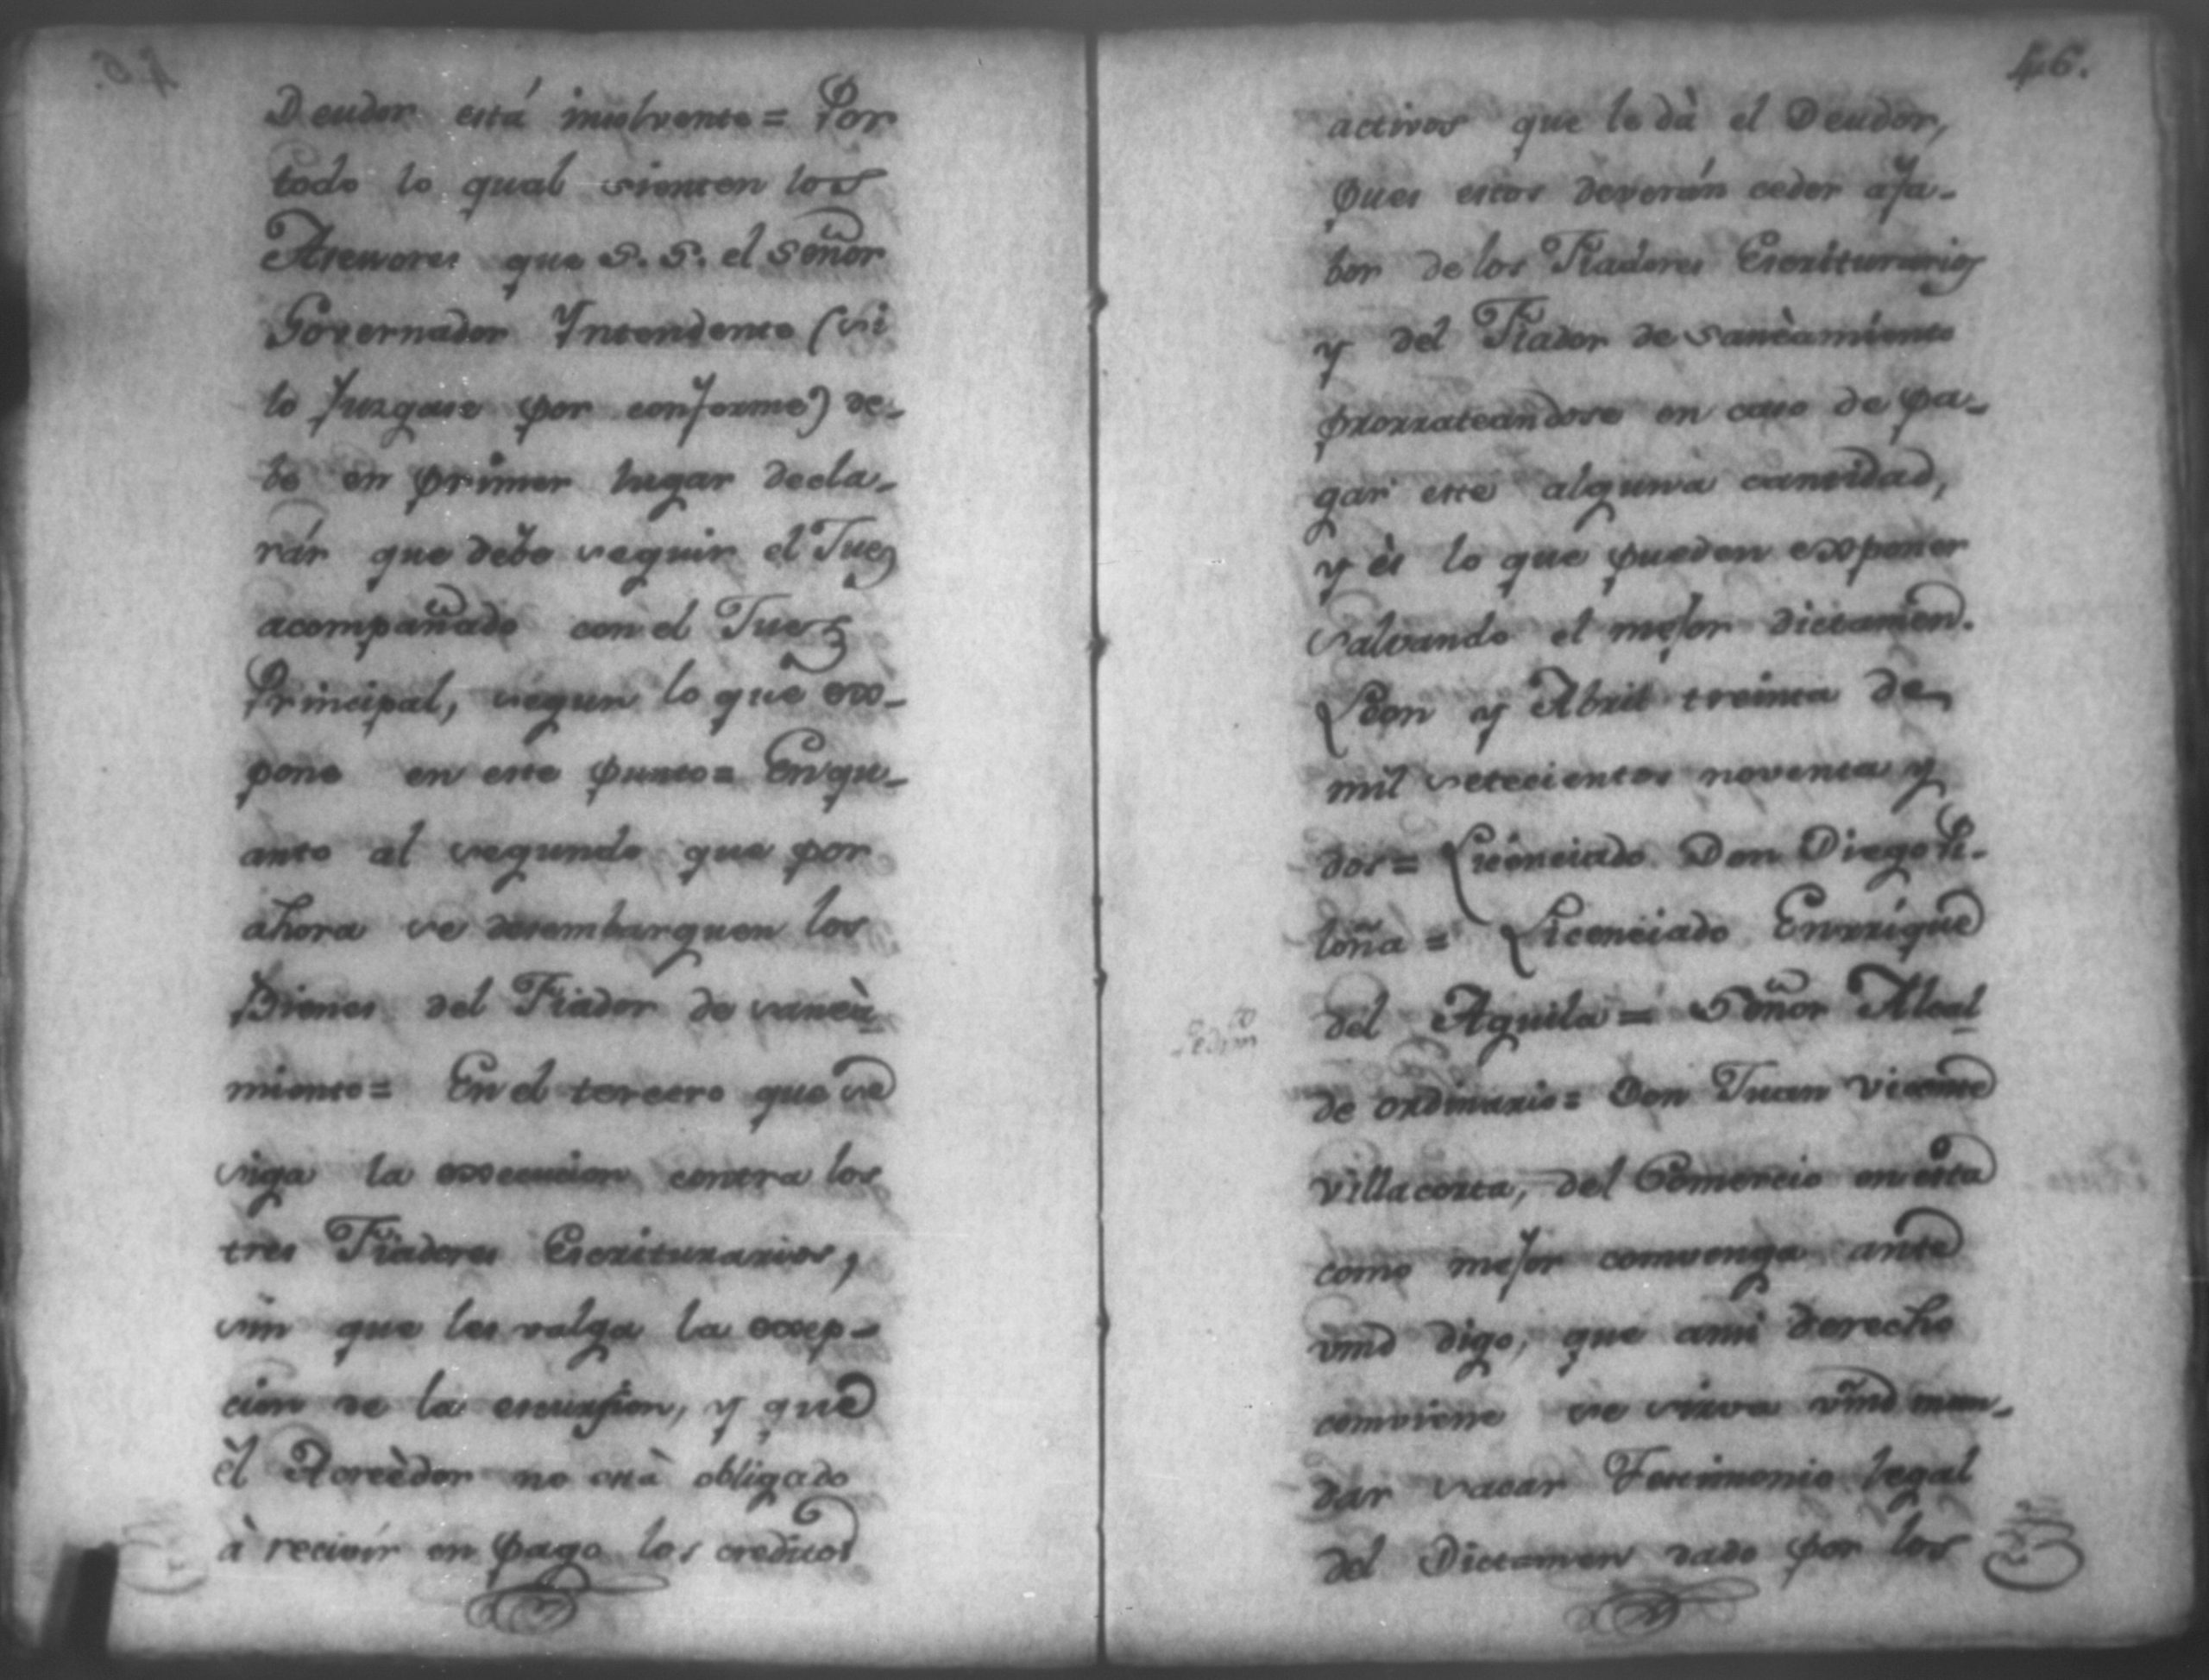 Deudor está insolvente = Por
todo lo qual sienten los
Asesores que S. S. el Señor
Governador Yntendente (si
lo Juzgase por conforme) de-
be en primer lugar decla-
rár que debe seguir el Juez
acompañado con el Juez
Principal, segun lo que ex-
pone en este punto = En qu-
anto al segundo que por
ahora se desembarguen los
Bienes del Fiador de saneà-
miento = En el tercero que se
siga la execucion contra los
tres Fiadores Escriturarios,
sin que les valga la excep-
cion de la escursion, y que
èl Acreèdor no està obligado
à recivir en pago los creditos
46.
activos que le dà el Deudor,
pues estos deverán ceder afa-
bor de los Fiadores Escriturarios
y del Fiador de saneàmiento
prorrateandose en caso de pa-
gar este alguna cantidad,
y ès lo que pueden exponer
salvando el mejor dictamen.
Leon y Abril treinta de
mil setecientos noventa y
dos = Licenciado Don Diego Pi-
loña = Licenciado Enrrique
del Aguila = Señor Alcal
de ordinario = Don Juan Vicente
Villacorta, del Comercio en esta
como mejor convenga ante
vmd digo, que ami derecho
combiene se sirva vmd man-
dar sacar Testimonio legal
del Dictamen dado por los